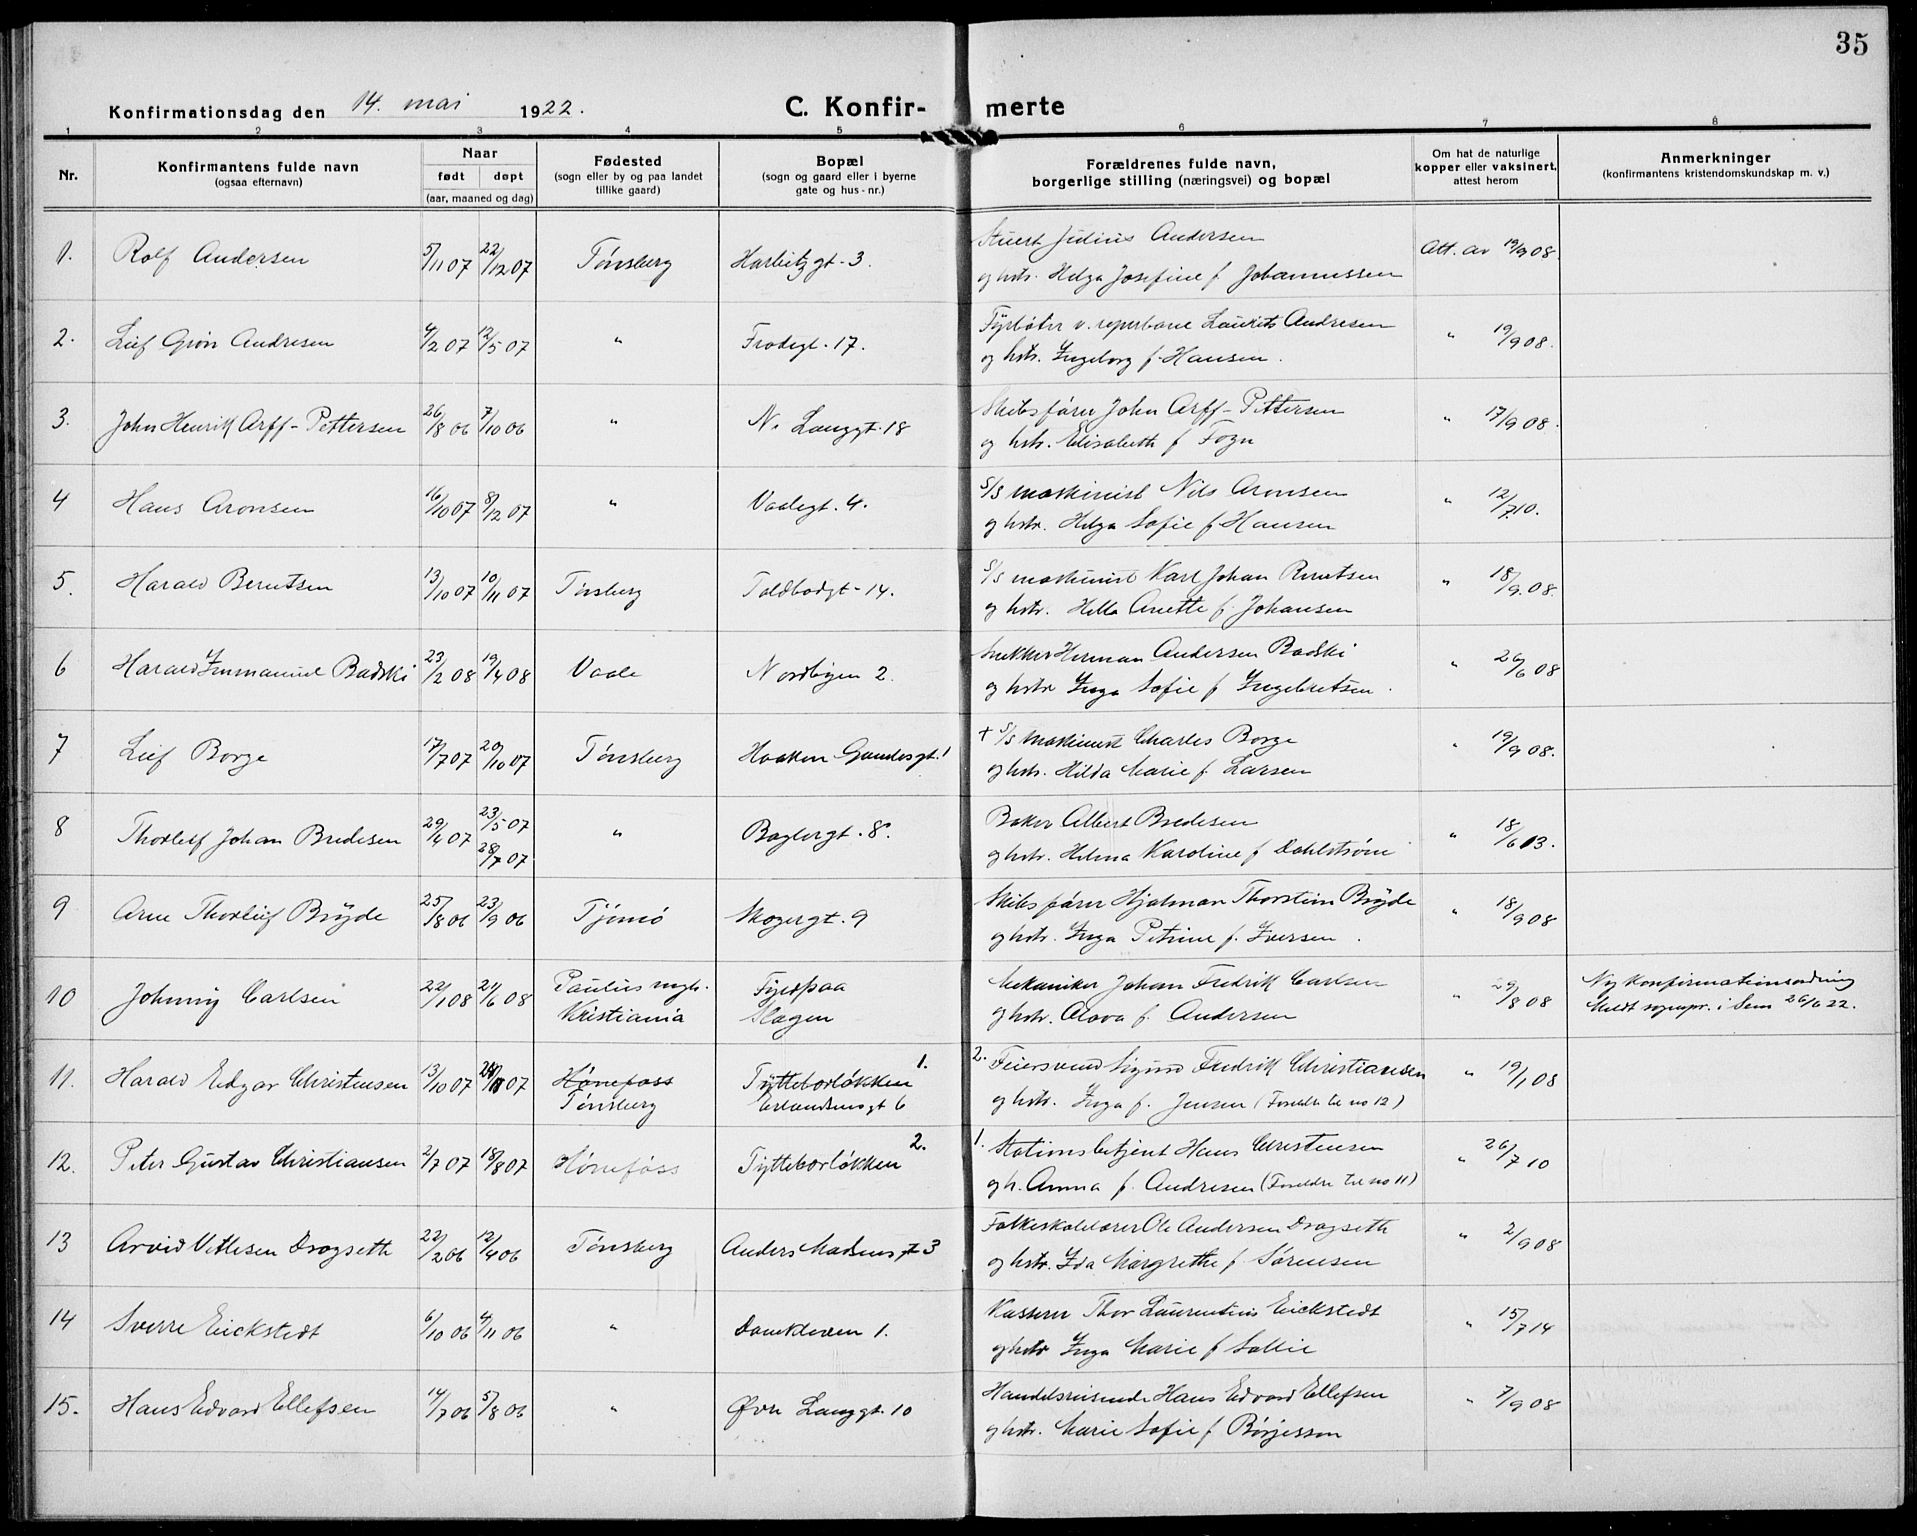 35
Konfirmationsdag den 14. mai 1922.
C. Konfir- merte
1 2 3 4 5 6 7 8
Nr.
Konfirmantens fulde navn
(ogsaa efternavn)
Naar
født døpt
(aar, maaned og dag)
Fødested
(sogn eller by og paa landet
tillike gaard)
Bopæl
(sogn og gaard eller i byerne
gate og hus-nr.)
Forældrenes fulde navn,
borgerlige stilling (næringsvei) og bopæl
Om hat de naturlige
kopper eller vaksinert,
attest herom
Anmerkninger
(konfirmantens kristendomskundskap m. v.)
1. Rolf Andersen 5/11 07 22/12 07 Tønsberg Harbitzgt. 3.
Stuert Julius Andersen
og hstr. Helga Josefine f. Johannessen
Att. av 19/9 08.
2. Leif Grøn Andresen 4/2 07 12/5 07 " Frodegt. 17.
Fyrbøter v. reperbane Laurits Andresen
og hstr. Ingeborg f. Hansen.
" 19/9 08.
3. John Henrik Arff-Pettersen 26/8 06 7/10 06 " N. Langgt. 18
Skibsfører John Arff-Pettersen
og hstr. Elisabeth f. Fogn
" 17/9 08.
4 Hans Aronsen 16/10 07 8/12 07 " Vaalegt. 4.
S/S maskinist Nils Aronsen
og hstr. Helga Sofie f. Hansen
" 12/7 10.
5. Harald Berntsen 13/10 07 10/11 07 Tønsberg Toldbodgt. 14.
S/S maskinist Karl Johan Berntsen
og hstr. Hella Anette f. Johansen
" 18/9 08.
6 Harald Immanuel Badski 23/2 08 19/4 08 Vaale Nordbyen 2.
Snekker Herman Andersen Badski
og hstr Inga Sofie f. Ingebretsen.
" 26/6 08
7 Leif Borge 17/7 07 20/10 07 Tønsberg Haaken Gamlesgt. 1
+ S/S maskinist Charles Borge
og hstr. Hilda Marie f. Larsen
" 19/9 08.
8 Thorleif Johan Bredesen 29/4 07 23/5 07 28/7 07 " Baglergt. 8.
Baker Albert Bredesen
og hstr. Helma Karoline f. Dahlstrøm
" 18/6 13.
9 Arne Thorleif Brÿde 25/8 06 23/9 06 Tjømø Skogergt. 9
Skibsfører Hjalmar Thorstein Brÿde
og hstr. Inga Petrine f. Iversen.
" 18/9 08
10 Johnny Carlsen 22/1 08 21/6 08 Paulus mgh.
Kristiania
Fyrspaa
Slagen
Mekaniker Johan Fredrik Carlsen
og hstr. Alava f. Andersen
" 29/8 08
Ny konfirmationsordning
Meldt sognepr. i Sem 26/6 22.
11. Harald Edgar Christensen 13/10 07 07 Hønefoss
Tønsberg
Tÿtteborløkken 1.
Erlandsensgt 6
2. Feiersvend Sigurd Fredrik Christiansen
og hstr. Inga f. Jensen (Foreldre til no 12)
" 19/1 08
12. Peter Gustav Christiansen 2/7 07 18/8 07 Hønefoss Tÿtteborløkken 2.
1. Stationsbetjent Hans Christensen
og h. Anna f. Andresen (Foreldre til no 11)
" 26/7 10
13 Arvid Vetlesen Dragseth 22/2 06 12/4 06 Tønsberg Anders Madsensgt 3
Folkeskolelærer Ole Andersen Dragseth
og hstr. Ida Margrethe f. Sørensen
" 2/9 08
14 Sverre Eickstedt 6/10 06 4/11 06 " Danekleven 1.
Kasserer Thor Laurentius Eickstedt
og hstr Inga Marie f. Sollie
" 15/7 14
15. Hans Edvard Ellefsen 14/7 06 5/8 06 " Øvre Langgt. 10
Handelsreisende Hans Edvard Ellefsen
og hstr. Marie Sofie f. Børjesson
" 7/9 08